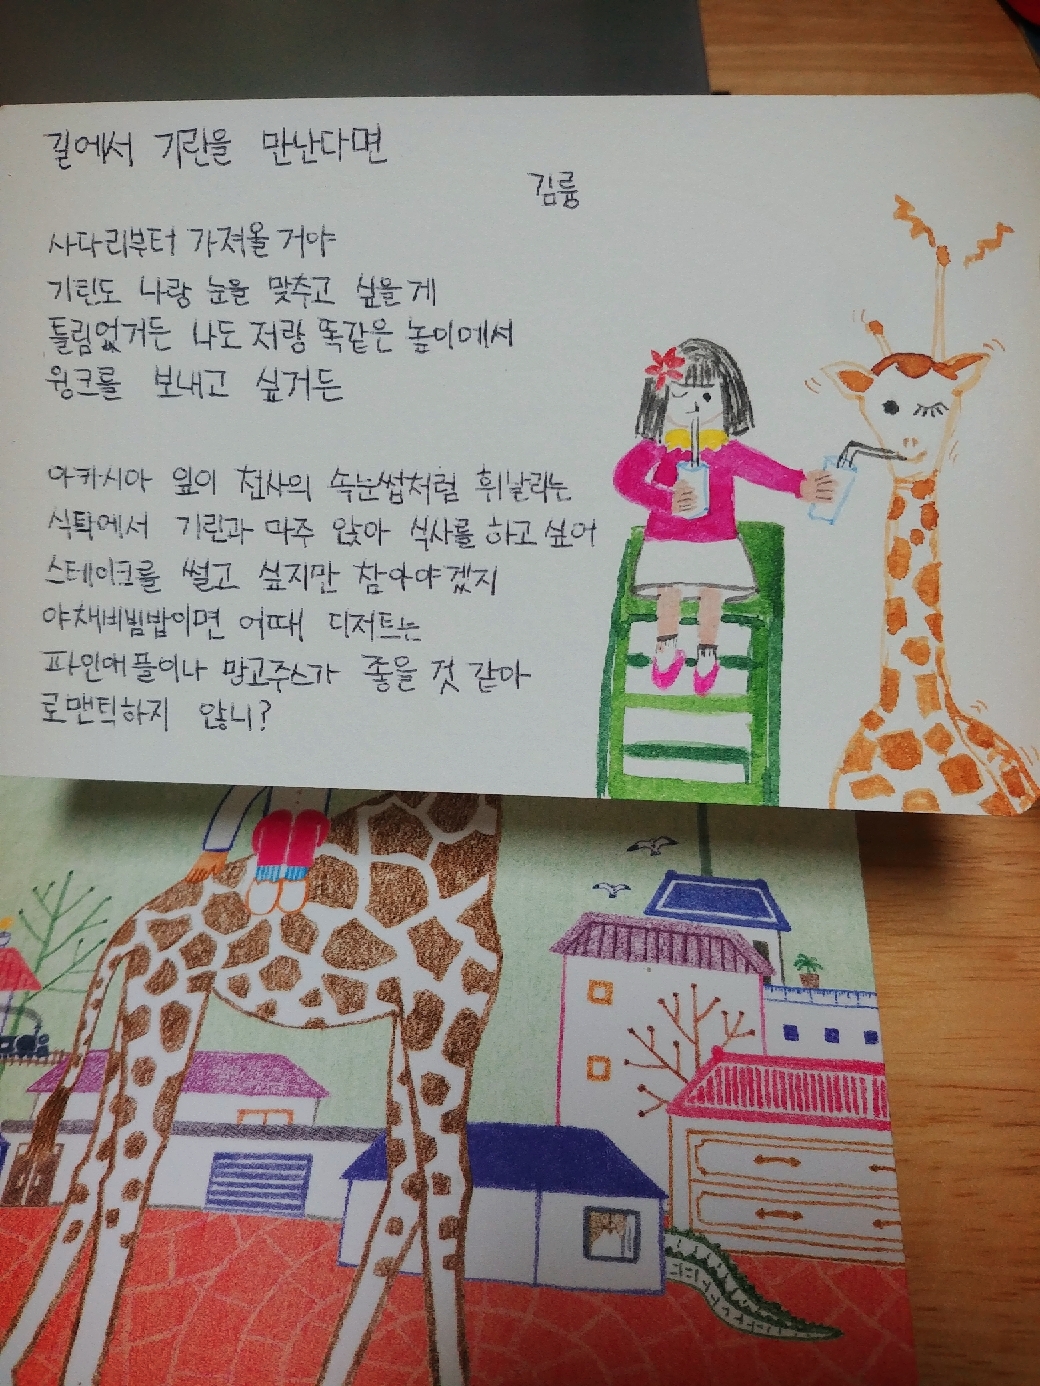 길에서 기린을 만난다면
김륭
사다리부터 가져올 거야
기린도 나랑 눈을 맞추고 싶을 게
틀림없거든 나도 저랑 똑같은 높이에서
윙크를 보내고 싶거든
아카시아 잎이 천사의 속눈썹처럼 휘날리는
식탁에서 기린과 마주 앉아 식사를 하고 싶어
스테이크를 썰고 싶지만 참아야겠지
야채비빔밥이면 어때! 디저트는
파인애플이나 망고주스가 좋을 것 같아
로맨틱하지 않니?